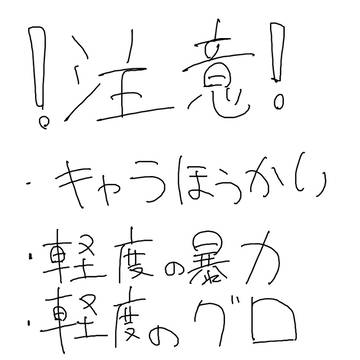 !注意!
・キャラほうかい
・軽度の暴力
・軽度のグロ